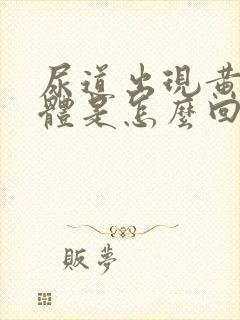 尿道出現黃
體是怎麼回
販夢